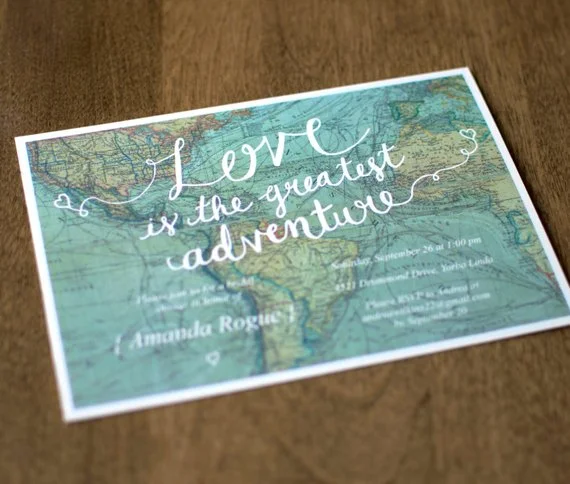 Love
is the greatest
adventure
Please join us for a
shower in honor of
{ Amanda Rogue }
Saturday, September 26 at 1:00 pm
4521 Drummond Drive, Yorba Linda
Please RSVP to Andrea at
by September 20